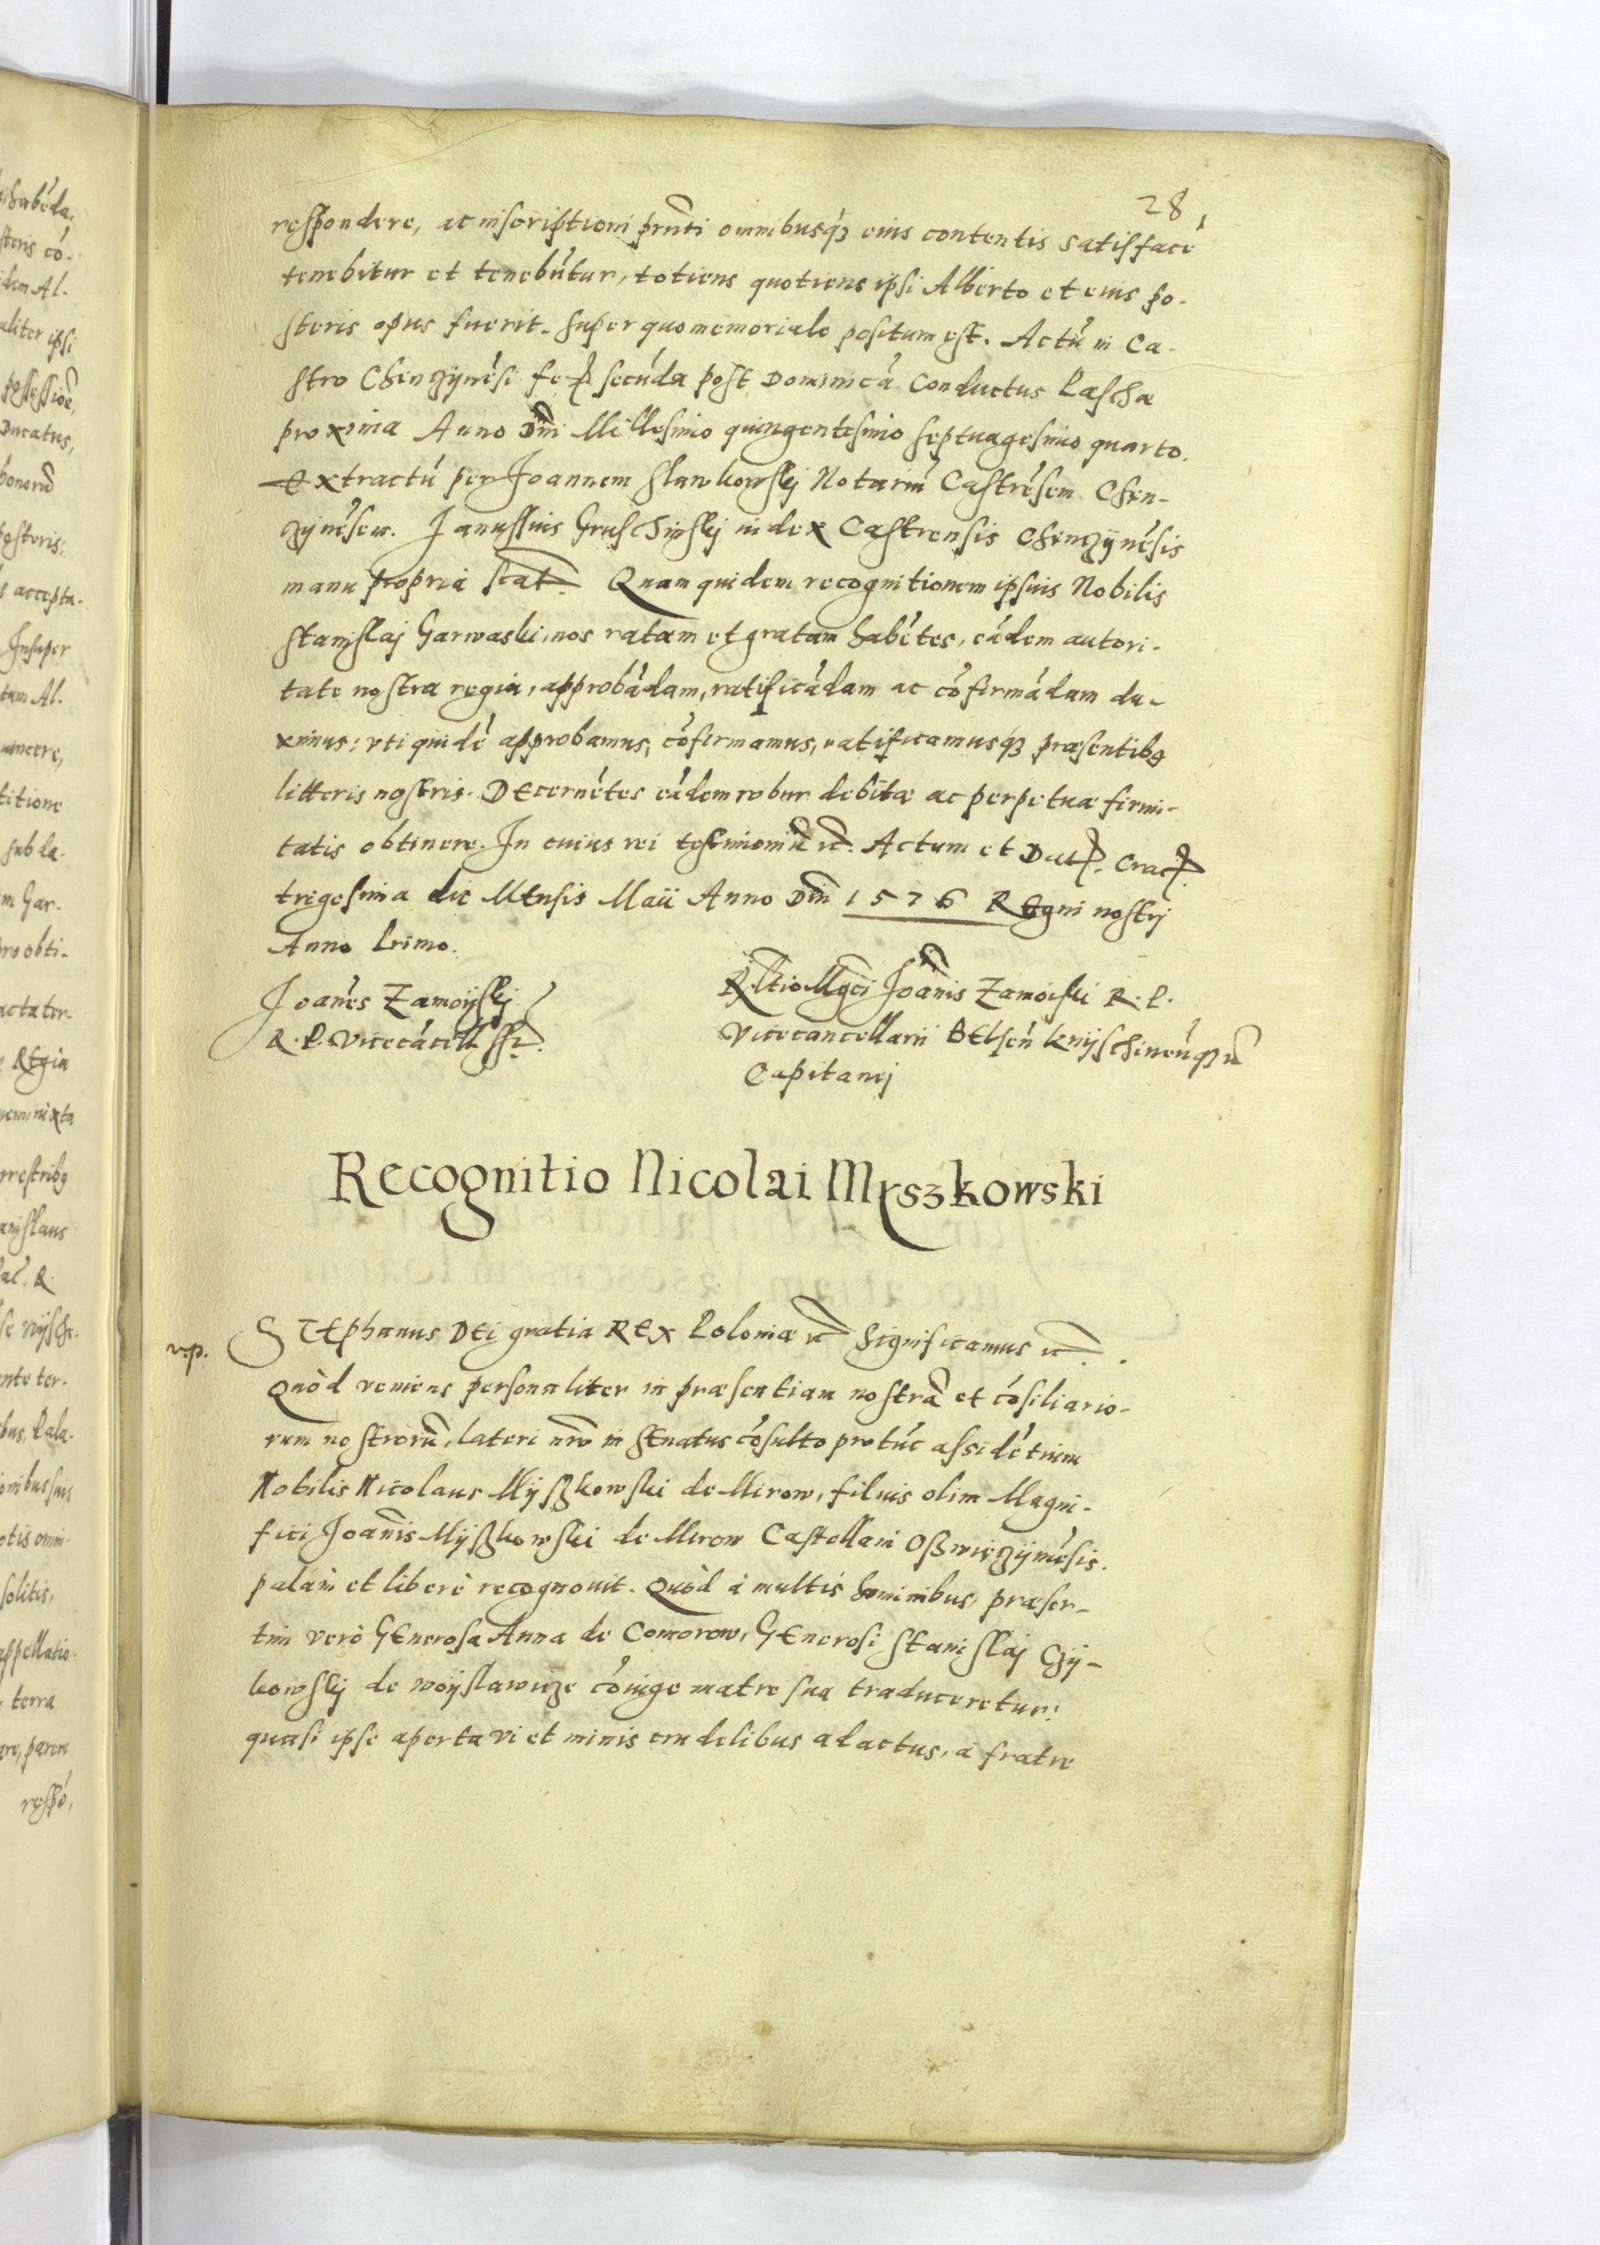 28
respondere, ac inscriptioni prnti omnibusq3 eius contentis satisfacé
tenebitur et tenebútur, totiens quotiens ipsi Alberto et eius po-
steris opus fuerit. Super quo memoriale positum est. Actú in Ca-
stro Chenzÿnési fer secúda post Dominicá Conductus Pascha
proxima Anno Dni Millesimo quingentesimo septuagesimo quarto.
Extractú per Joannem Slawkowskj Notariú Castrésem Chen-
zÿnésem. Janussius Gruschinskj iudex Castrensis Chenczÿnésis
manu propria scat. Quam quidem recognitionem ipsius Nobilis
Stanislaj Garwaski, nos ratam et gratam habétes, eádem autori-
tate nostra regia, approbádam, ratificádam ac cófirmádam du-
ximus: vti quidé approbamus, cófirmamus, ratificamusq3 præsentibq
litteris nostris. Decernétes eádem robur debitæ ac perpetuæ firmi-
tatis obtinere. In cuius rei testimoniū etc. Actum et Dat. Crac.
trigesima die Mensis Maii Anno Dni 1576 Regni nostrj
Anno Primo.
Joanés Zamoÿskj
R. P. Vicecácell. sst.
Rltio Mgci Joānis Zamoiski R. P.
Vicecancellarii Belsen Knÿschinenq3ū
Capitanej
Recognitio Nicolai Myszkowski
v.p. Stephanus Dei gratia Rex Poloniæ etc Significamus etc.
Quòd veniens personaliter in præsentiam nostrā et cósiliario-
rum nostrorū, lateri nro in Senatus cósulto protúc assidétium
Nobilis Nicolaus Mÿszkowski de Mirow, filius olim Magni-
fici Joānis Mÿszkowski de Mirow Castellani Oszwieczÿmésis.
palàm et liberè recognouit. Quòd à multis hominibus, præser-
tim verò Generosa Anna de Comorow, Generosi Stanislaj Czÿ-
kowskj de Woÿslawicze cóiuge matre sua traduceretur:
quasi ipse aperta vi et minis crudelibus adactus, à fratre